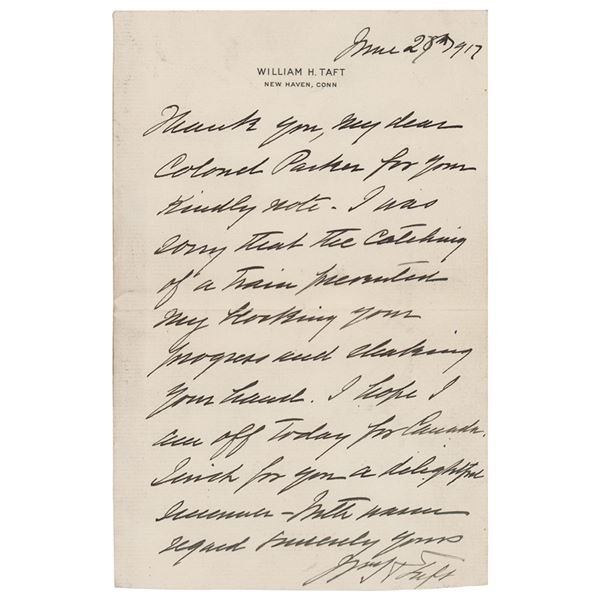 June 28th 1917
WILLIAM H. TAFT
NEW HAVEN, CONN
Thank you, my dear
Colonel Parker for your
kindly note - I was
sorry that the catching
of a train prevented
my your
progress and shaking
your hand. I hope I
am off today for Canada.
I wish for you a delightful
summer - With warm
regard Sincerely yours
Wm H Taft